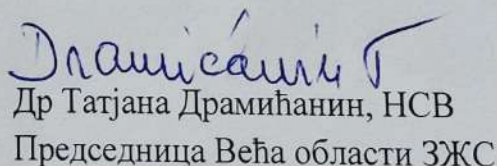 Драмићанин Т
Др Татјана Драмићанин, НСВ
Председница Већа области ЗЖС